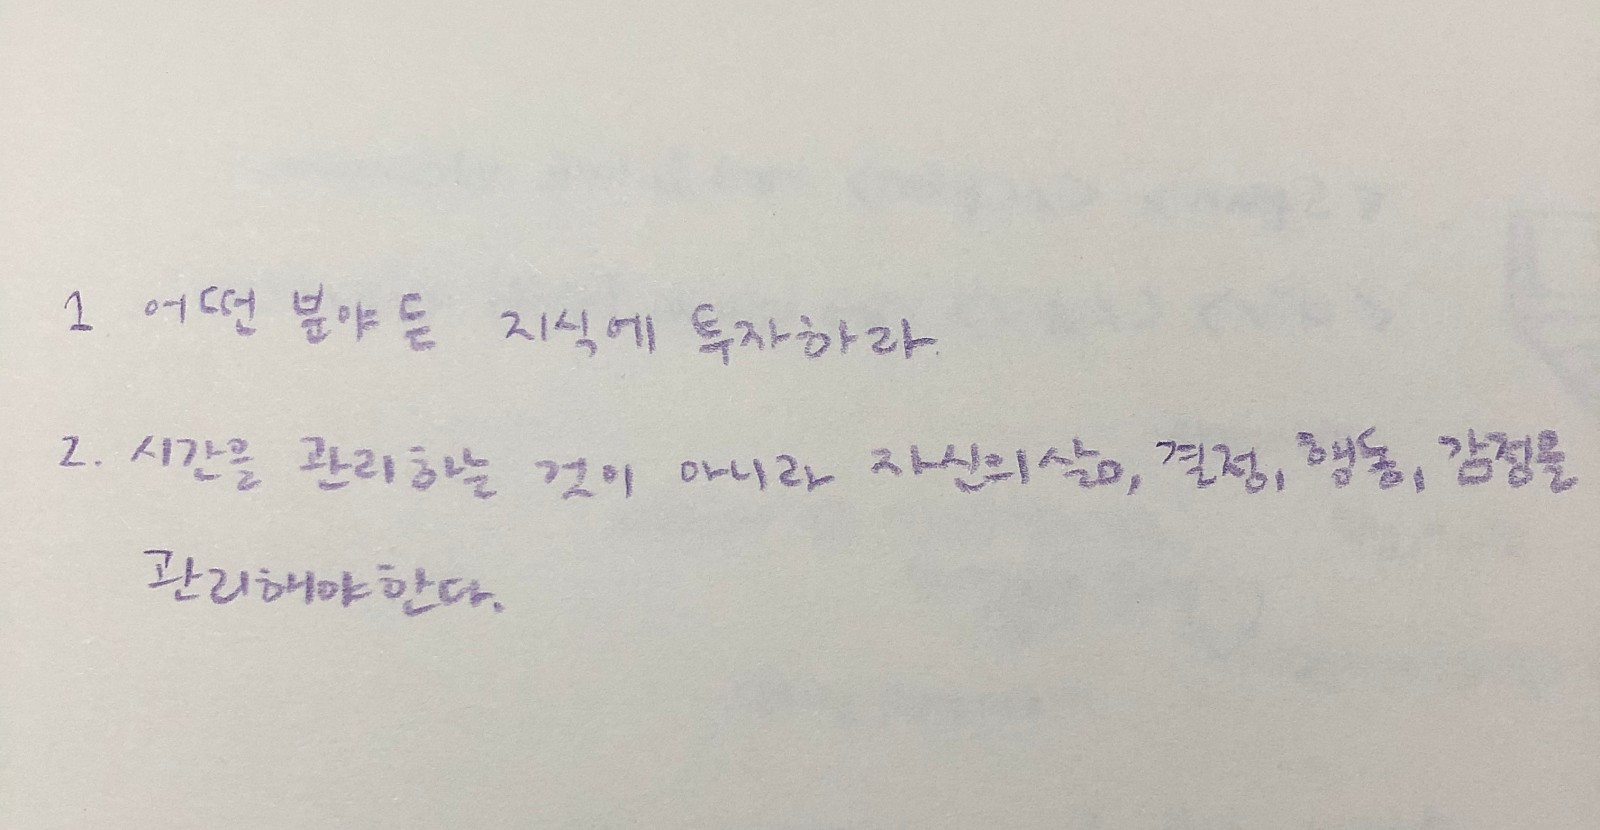 1 어떤 분야든 지식에 투자하라.
2. 시간을 관리하는 것이 아니라 자신의 삶, 결정, 행동, 감정을
관리해야한다.